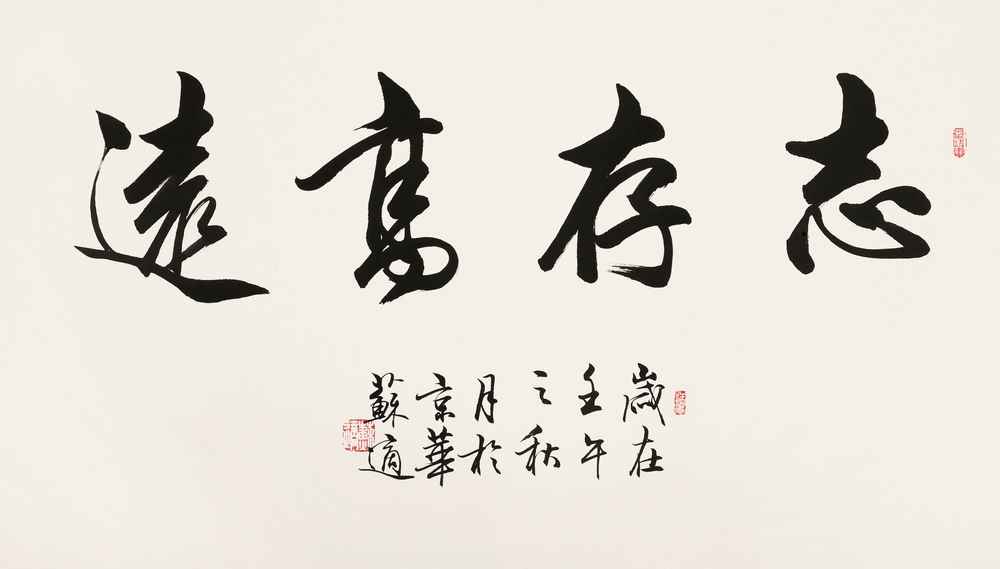 志存高遠
歲在
壬午
之秋
月於
京華
蘇適